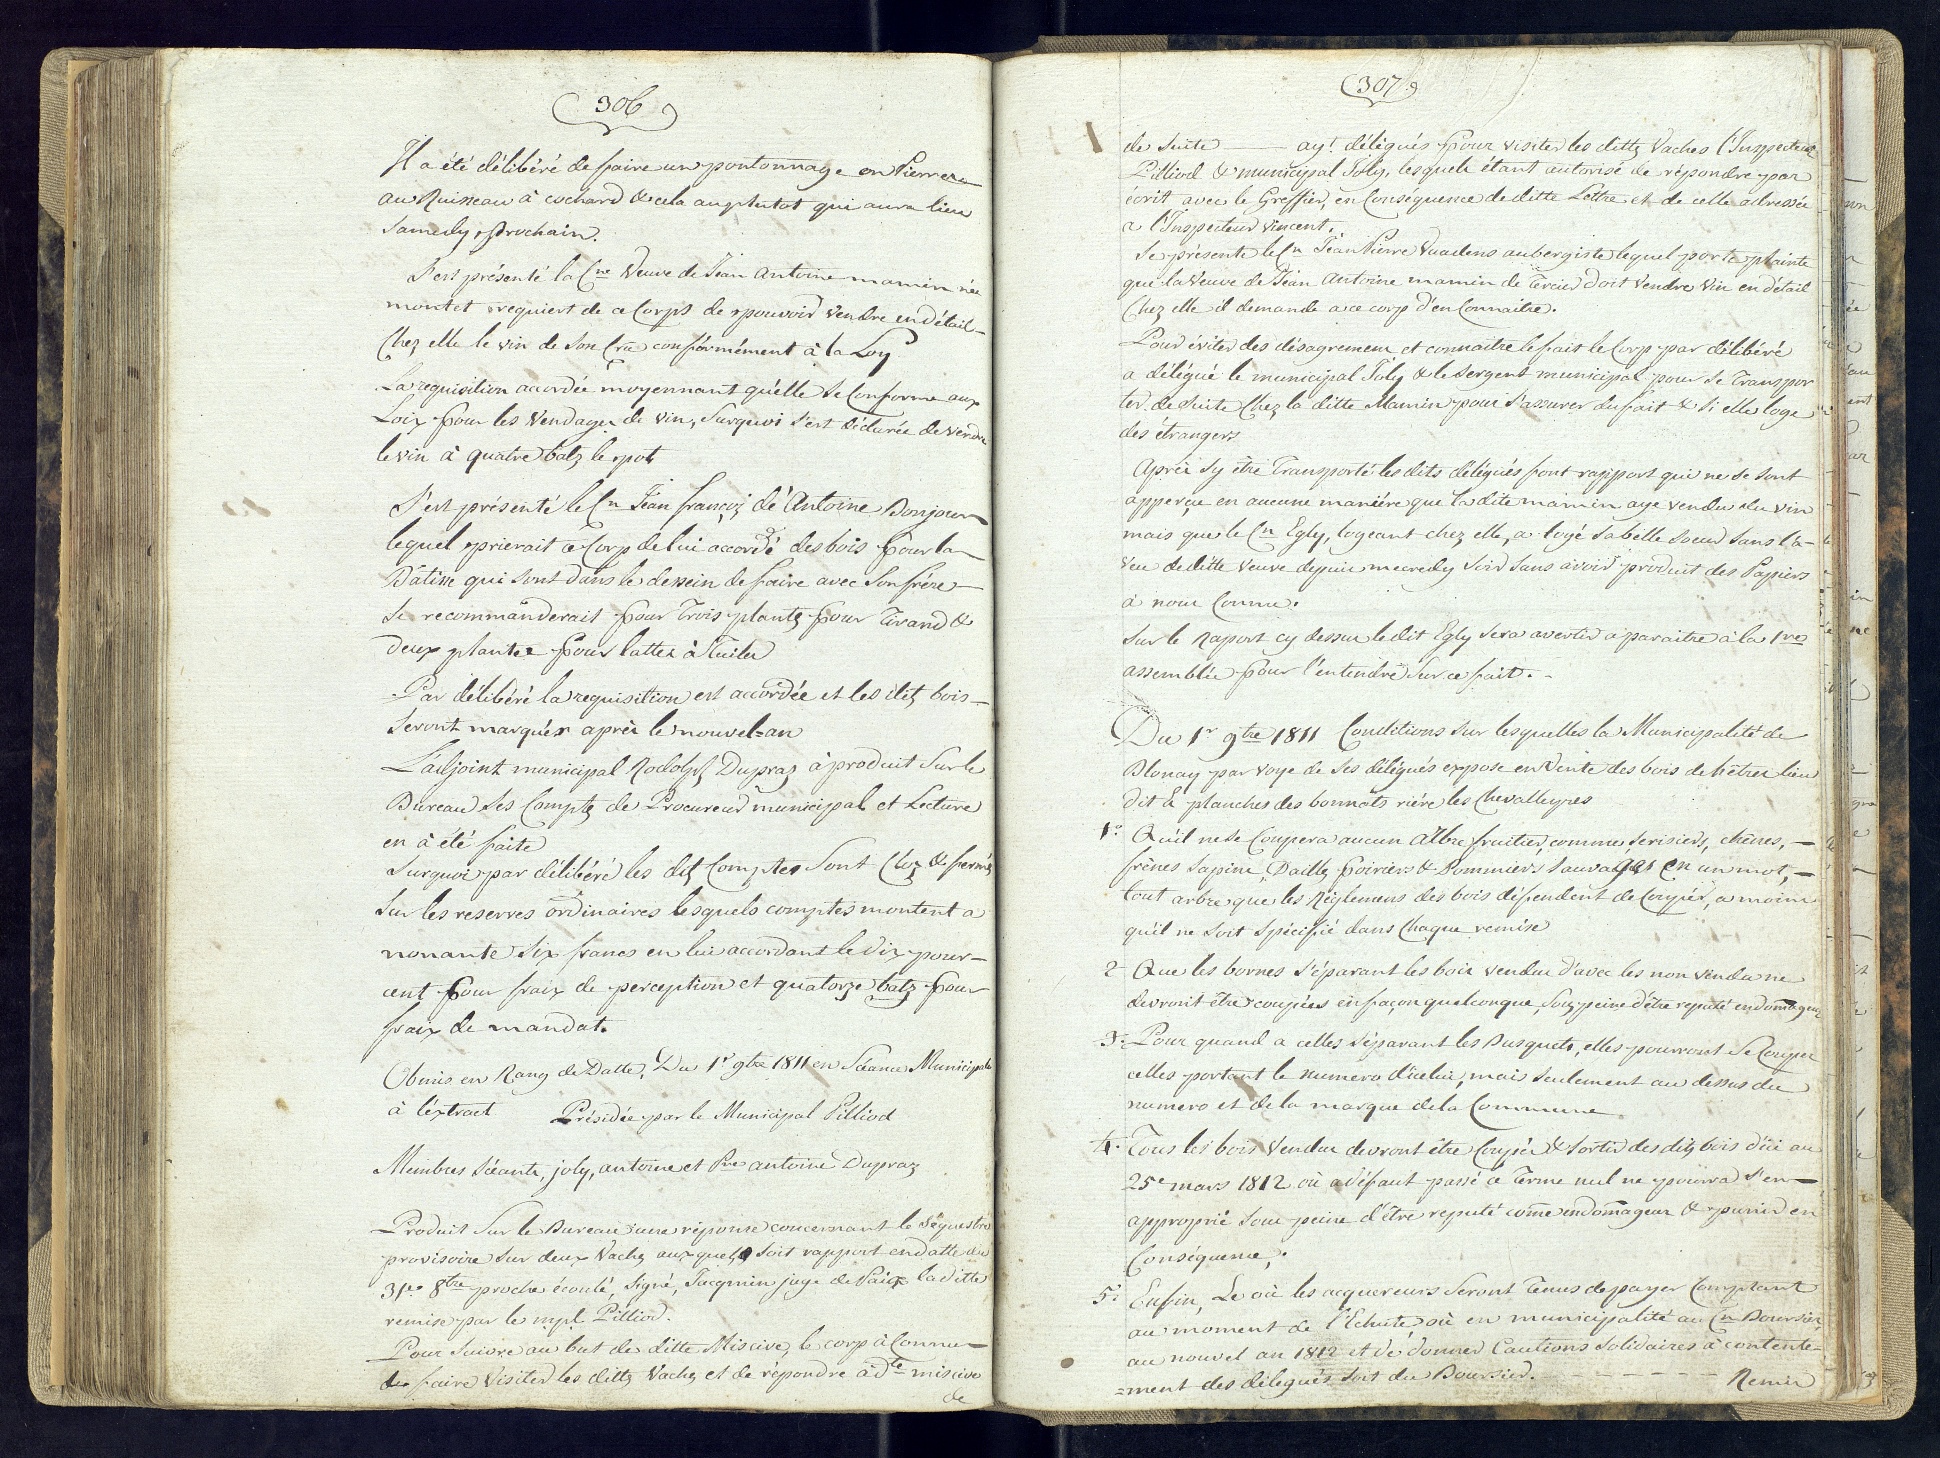 306
Il a été délibéré de faire un pontonnage en Pierre
au Ruisseau à cochard & cela auplutot qui aura lieu
Samedy prochain.
S'est présenté la Cne Veuve de Jean Antoine mamin née
montet requiert de ce Corps de pouvoir vendre en détail
Chez elle le vin de son Cru conformément à la Loy
La requisition accordée moyennant qu'elle se Conforme aux
Loix pour les Vendages de vin, Surquoi s'est déclarée de vendre
le vin à quatre batz le pot
S'est présenté le Cn Jean françoiz dé Antoine Bonjour
lequel prierait ce Corp de lui accordé des bois pour la
Bâtise qui sont dans le dessein de faire avec son frére
se recommanderait pour trois plantz pour Tirand &
deux plantes pour lattes à Tuiles
Par délibéré la requisition est accordée et les ditz bois
seront marqués après le nouvel-an
L'adjoint municipal Rodolph Dupraz à produit sur le
Bureau ses Comptz de Procureur municipal et Lecture
en à été faite
Surquoi par délibéré les ditz Comptes sont Cloz & fermés
sur les reserves ordinaires lesquels comptes montent a
nonante six francs en lui accordant le dix pour
cent pour fraix de perception et quatorze batz pour
fraix de mandat.
Obmis en Rang de Datte, Du 1r 9bre 1811 en Séance Municipale
à l'éxtract Présidée par le Municipal Pilliod
Membres Séants, joly, antoine et Pre antoine Dupraz
Produit sur le Bureau une réponse concernant le Séquestre
provisoire sur deux Vachz auxquels soit rapport en datte du
31e 8bre proche écoulé, signé, Jacqmin juge de Paix laditte
remise par le mpl. Pilliod.
Pour suivre au but de ditte Miscive, le corp à Connu
de faire Visiter les dittz Vachz et de répondre à dte miscive
de
307
de suite ay.t délégués pour visiter les dittz Vaches l'Inspecteur
Pilliod & municipal Joly, lesquels étant autorisé de répondre par
écrit avec le Greffier, en Conséquence de ditte Lettre et de celle adressée
a l'Inspecteur Vincent.
Se présente le Cn Jean Pierre Vuadens aubergiste lequel porte plainte
que la Veuve de Jean Antoine mamin de Tercier doit Vendre Vin en détail
Chez elle il demande a ce corp d'en Connaitre.
Pour éviter des désagremens et connaitre le fait le Corp par délibéré
a délégué le municipal Joly & le Sergent municipal pour se Transpor
ter de suite Chez la ditte Mamin pour s'assurer du fait & si elle loge
des étrangers
Après sy être Transporté les dits délégués font rapport qui ne se sont
apperçue en aucune maniére que la dite mamin aye vendu du vin
mais que le Cn Egly, logeant chez elle, a logé sa belle soeur sans l'a-
veu de ditte veuve depuis mecredy soir sans avoir produit des Papiers
à nous Connu.
Sur le raport cy dessus le dit Egly sera avertir a paraitre à la 1re
assemblée pour l'entendre sur ce fait.
Du 1r 9bre 1811 Conditions sur lesquelles la Municipalité de
Blonay par voye de ses délégués expose en Vente des bois de hêtres lieu
dit à planches des bonnots riére les Chevalleyres
1° Qu'il ne se Coupera aucun Albre fruitier, comme, serisiers, chênes,
frênes Sapins, Daillz, Poiriers & Pommiers sauvages en un mot,
tout arbre que les Réglemens des bois défendent de Couper, a moins
qu'il ne soit spécifié dans Chaque remise
2 Que les bornes s'éparant les bois vendus d'avec les non vendu ne
devront être coupées en façon quelconque, souz peine d'être reputé endomageur
3. Pour quand a celles s'éparant les Busquets, elles pourront se Couper
celles portant le numero d'icelui, mais seulement au dessus du
numero et de la marque de la Commune
4. Tous les bois Vendus devront être Coupés & sortir des ditz bois d'ici au
25e mars 1812 où a défaut passé ce Terme nul ne pourra s'en
approprié sous peine d'être reputé come endomageur & punir en
Conséquence.
5° Enfin, Le où les acquereurs seront Tenus de payer Comptant
au moment de l'Echute où en municipalité au Cn Boursier
au nouvel an 1812 et de donner Cautions solidaires à contente=
=ment des délégués soit du Boursier. - - - - - - Remis